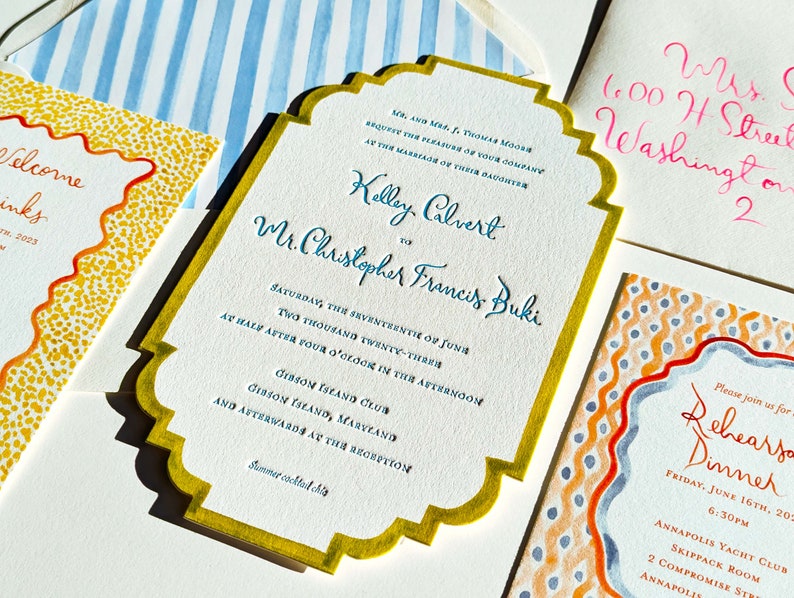 Mr. and Mrs. J. Thomas Moore
request the pleasure of your company
at the marriage of their daughter
Kelley Calvert
to
Mr. Christopher Francis Buki
Saturday, the seventeenth of June
Two thousand twenty-three
at half after four o'clock in the afternoon
Gibson Island Club
Gibson Island, Maryland
and afterwards at the reception
Summer cocktail chic
Welcome
2023
Mrs.
600 H Street
Washington
2
Please join us for
Dinner
Friday, June 16th, 202
6:30pm
Annapolis Yacht Club
Skippack Room
2 Compromise Street
Annapolis